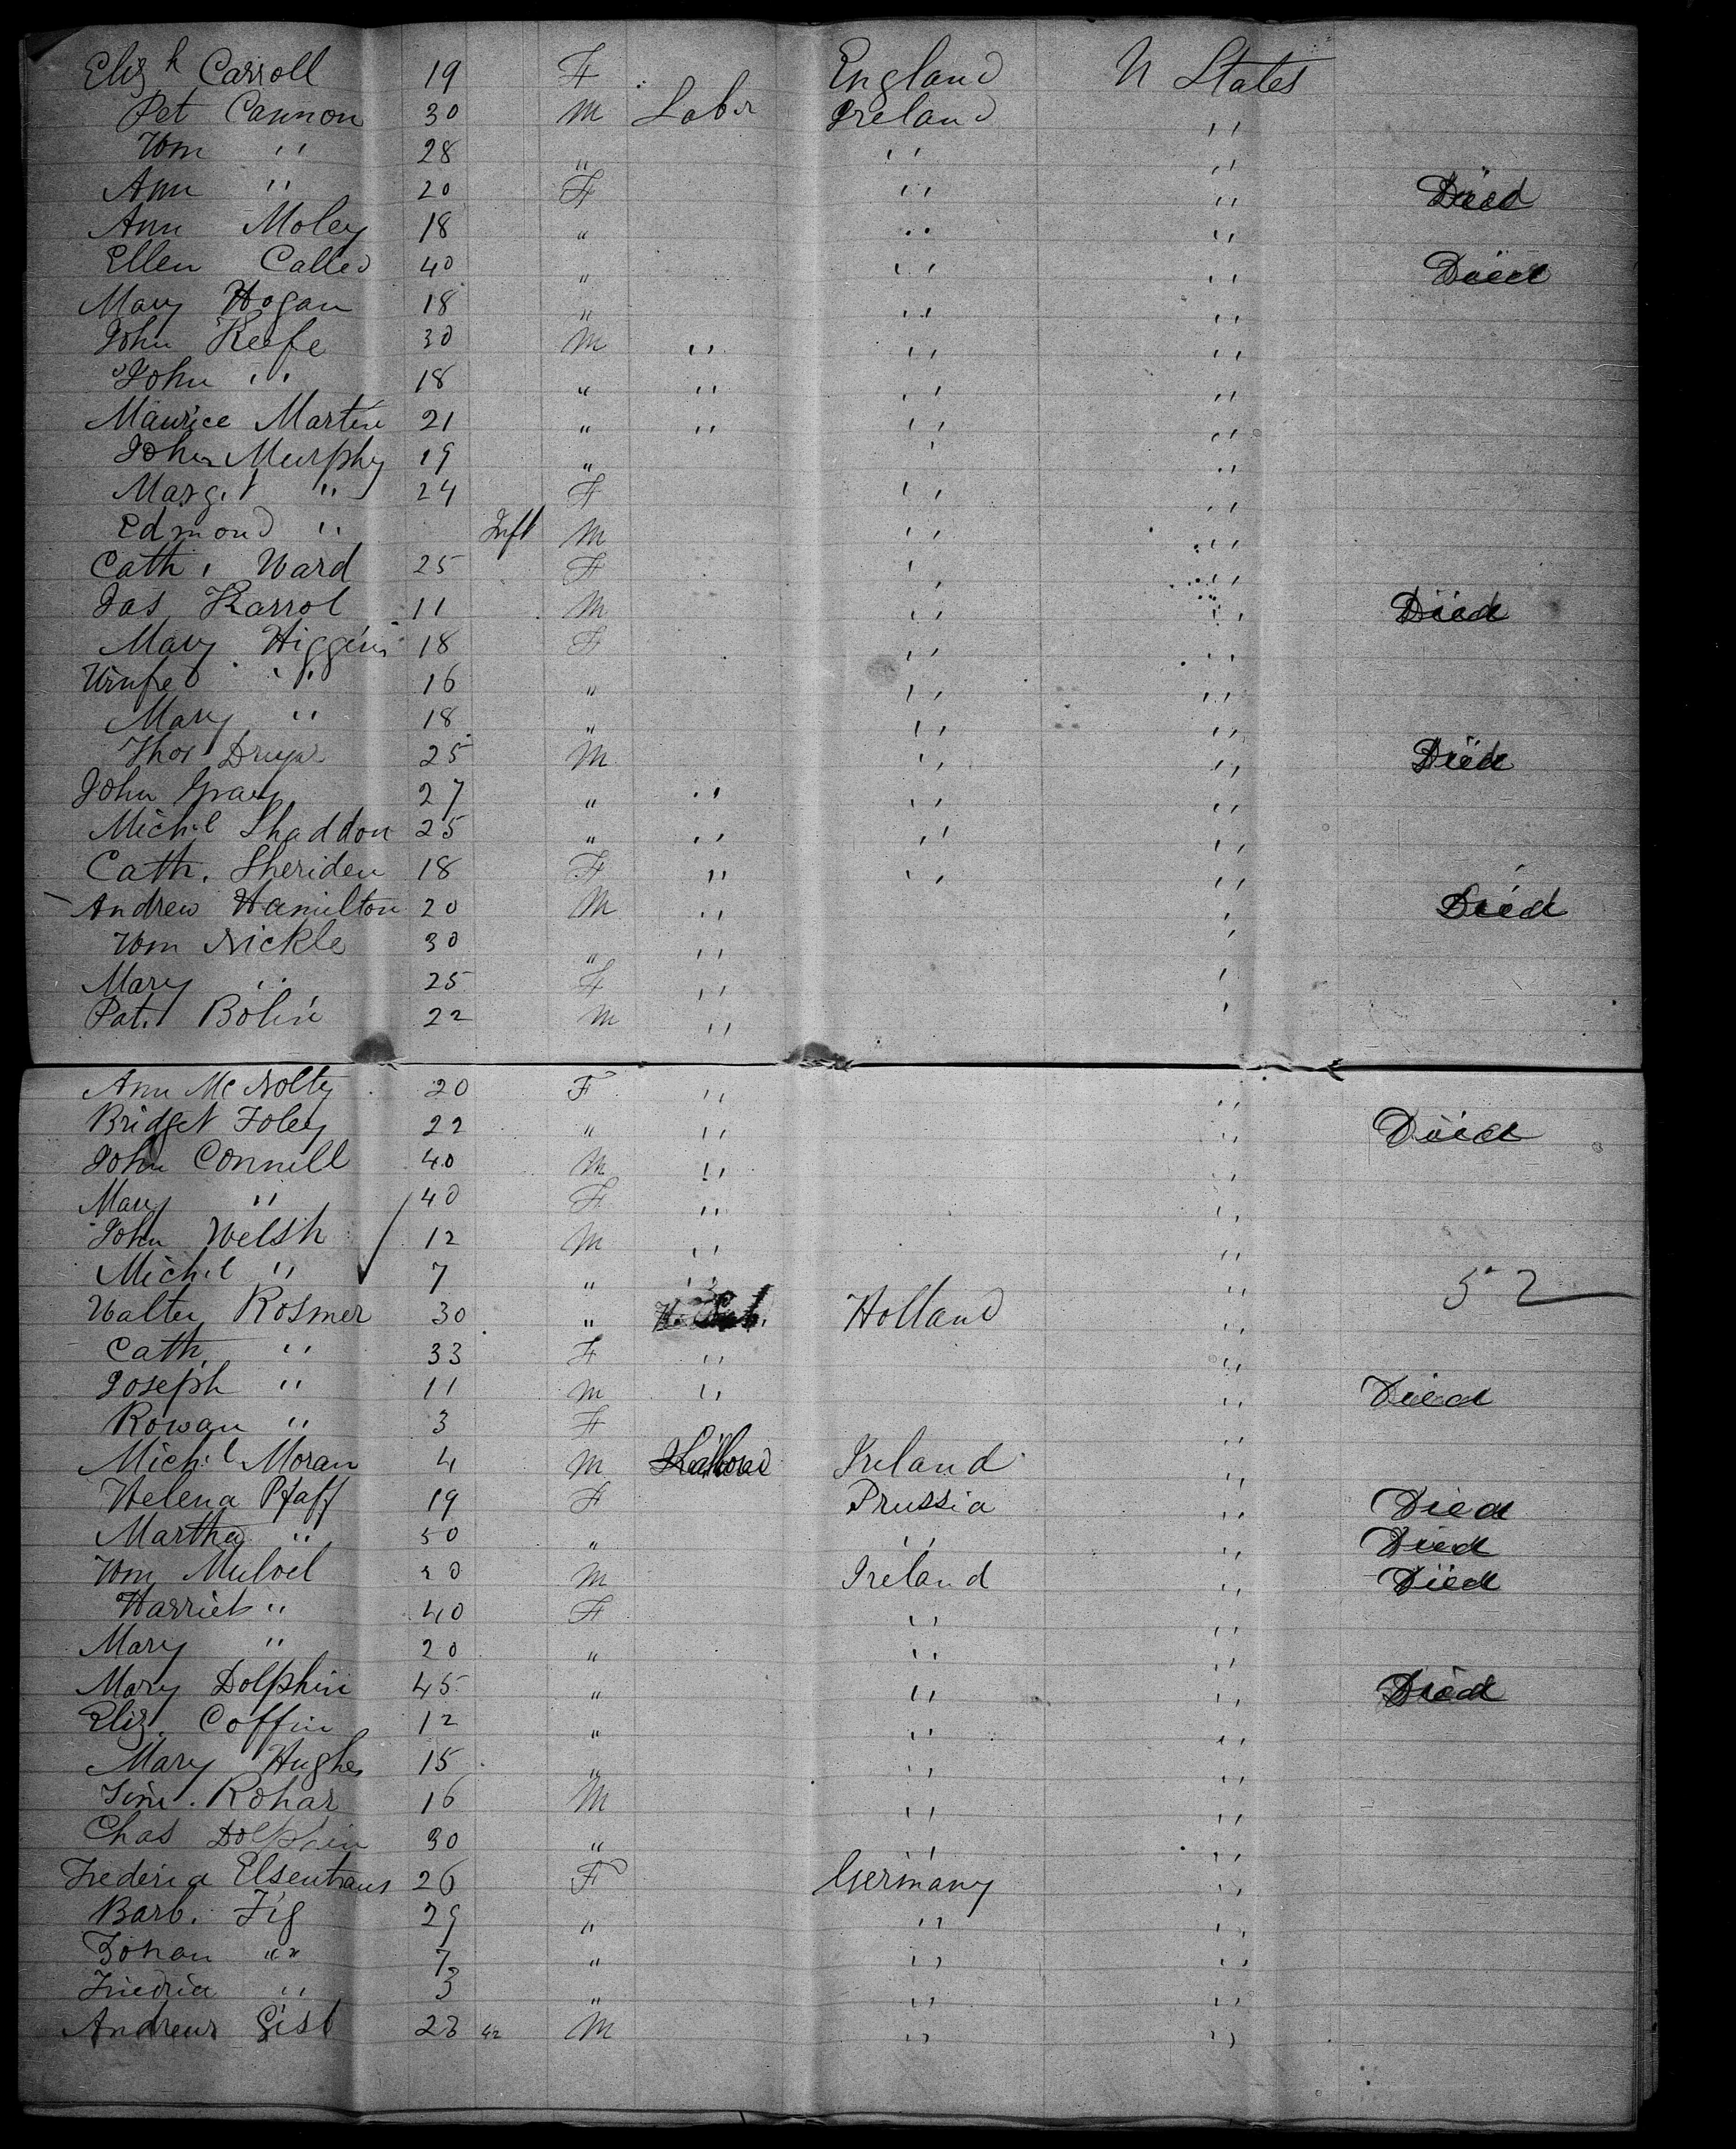 Eliz h Carroll 19 F England U States
Pet Cannon 30 M Labr Ireland ,,
Wm ,, 28 ,, ,, ,,
Ann ,, 20 F ,, ,, Died
Ann Moley 18 " ,, ,,
Ellen Called 40 " ,, ,, Died
Mary Hogan 18 " ,, ,,
John Keefe 30 M ,, ,, ,,
John ,, 18 " ,, ,, ,,
Maurice Martin 21 " ,, ,, ,,
John Murphy 19 " ,, ,,
Marg.t " 24 F ,, ,,
Edmond " Inft M ,, ,,
Cath. Ward 25 F ,, ,,
Jas Karrol 11 M ,, ,, Died
Mary Higgins 18 F ,, ,,
Winfred ,, 16 " ,, ,,
Mary ,, 18 " ,, ,,
Thos 25 M ,, ,, Died
John Gray 27 " ,, ,, ,,
Mich.l Shaddon 25 " ,, ,, ,,
Cath. Sheriden 18 F ,, ,, ,,
Andrew Hamilton 20 M ,, , Died
Wm Nickle 30 " ,, ,
Mary ,, 25 F ,, ,
Pat. Bolin 22 M ,, ,
Ann McNolty 20 F ,, ,,
Bridget Foley 22 " ,, ,, Died
John Connell 40 M ,, ,,
Mary " 40 F ,, ,,
John Welsh 12 M ,, ,,
Mich.l " 7 " ,, ,, 52
Walter Rosmer 30 " Holland ,,
Cath. ,, 33 F ,, ,,
Joseph ,, 11 M ,, ,, Died
Rowan ,, 3 F ,,
Mich.l Moran 4 M Ireland ,,
Helena Pfaff 19 F Prussia ,, Died
Martha ,, 50 " ,, ,, Died
Wm Mulvel M Ireland ,, Died
Harriet ,, 40 F ,, ,,
Mary " 20 " ,, ,,
Mary Dolphin 45 " ,, ,, Died
Eliz. Coffin 12 " ,, ,,
Mary Hughes 15 " ,, ,,
Rohar 16 M ,, ,,
Chas Dolphin 30 " ,, ,,
Frederica Elsentraus 26 F Germany ,,
Barb. Fig 29 " ,, ,,
Johan " 7 " ,, ,,
Friedrica ,, 3 " ,, ,,
Andreus Gist 28 M ,, ,,